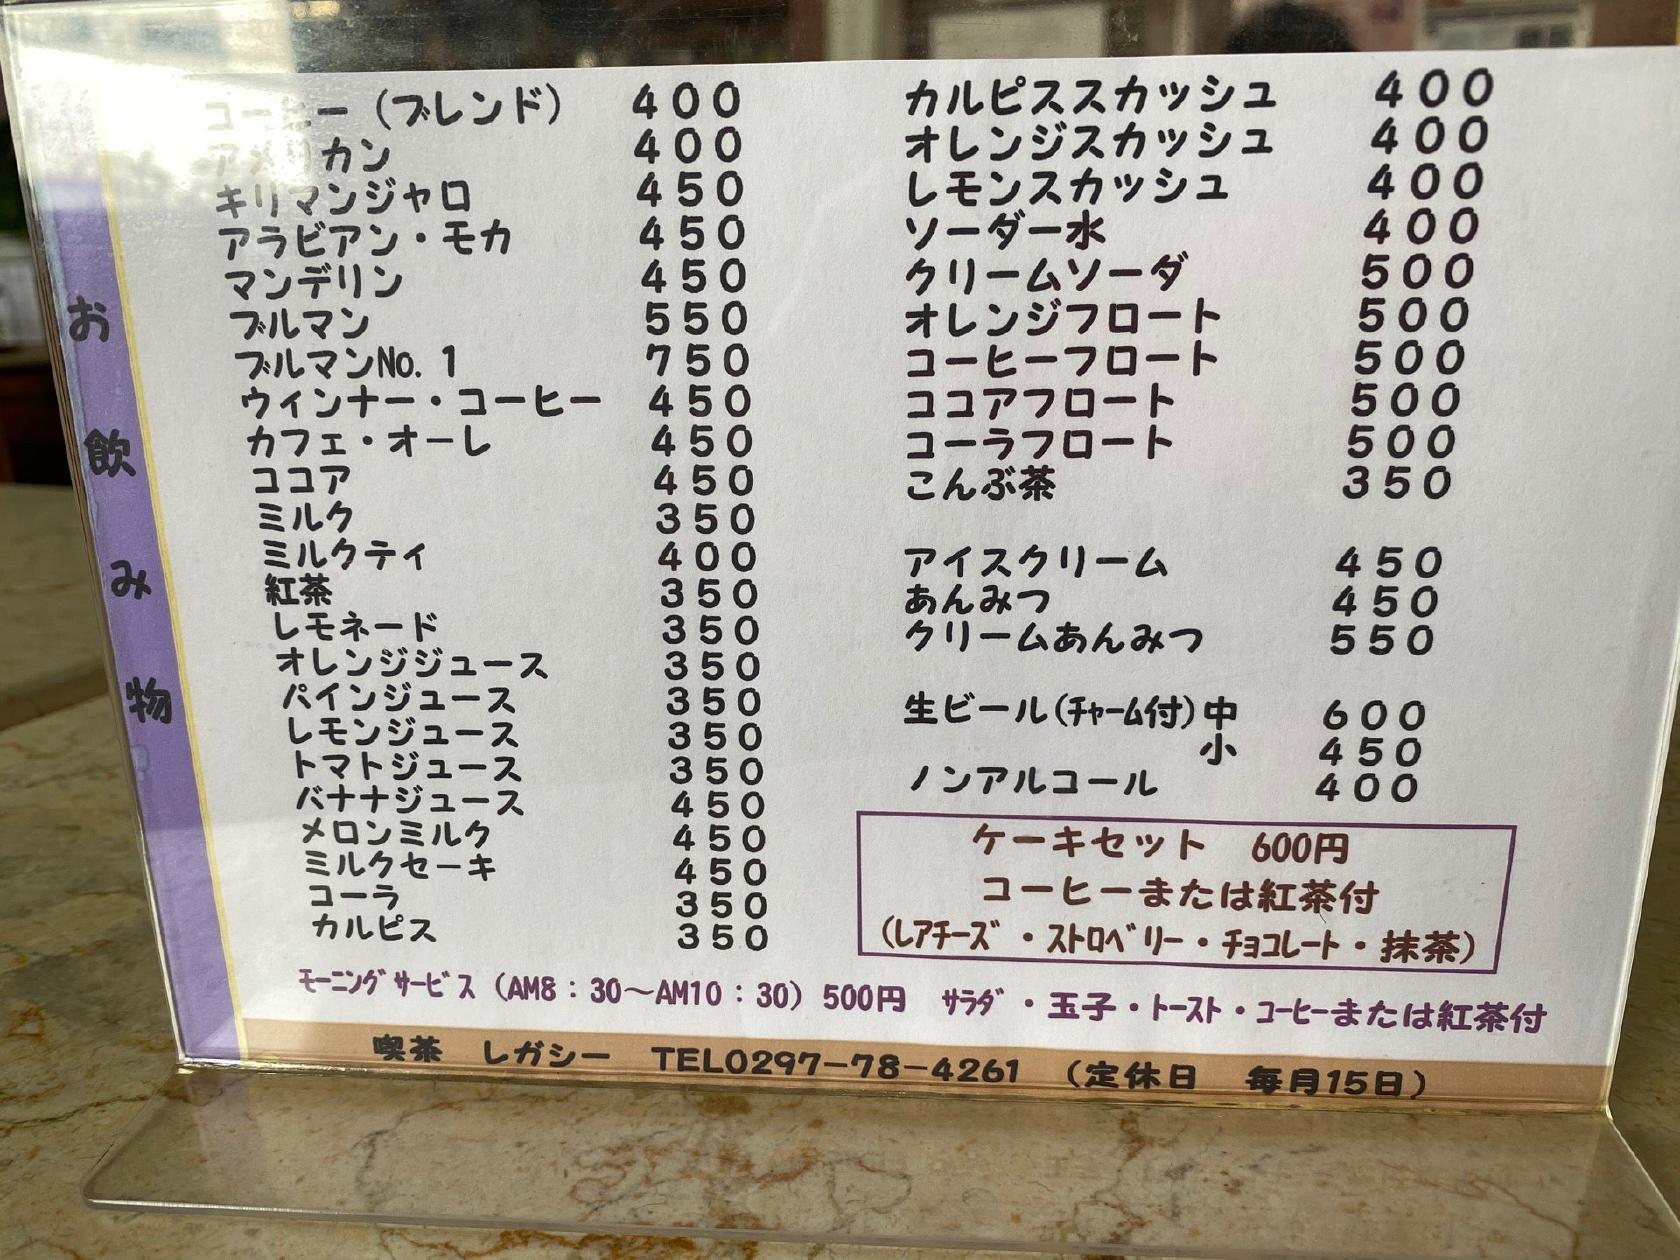 お飲み物
コーヒー（ブレンド） 400
アメリカン 400
キリマンジャロ 450
アラビアン・モカ 450
マンデリン 450
ブルマン 550
ブルマンNo.1 750
ウィンナー・コーヒー 450
カフェ・オーレ 450
ココア 450
ミルク 350
ミルクティ 400
紅茶 350
レモネード 350
オレンジジュース 350
パインジュース 350
レモンジュース 350
トマトジュース 350
バナナジュース 450
メロンミルク 450
ミルクセーキ 450
コーラ 350
カルピス 350
カルピススカッシュ 400
オレンジスカッシュ 400
レモンスカッシュ 400
ソーダー水 400
クリームソーダ 500
オレンジフロート 500
コーヒーフロート 500
ココアフロート 500
コーラフロート 500
こんぶ茶 350
アイスクリーム 450
あんみつ 450
クリームあんみつ 550
生ビール(ﾁｬｰﾑ付)中 600
小 450
ノンアルコール 400
ケーキセット 600円
コーヒーまたは紅茶付
(ﾚｱﾁｰｽﾞ・ｽﾄﾛﾍﾞﾘｰ・ﾁｮｺﾚｰﾄ・抹茶)
ﾓｰﾆﾝｸﾞｻｰﾋﾞｽ（AM8：30～AM10：30）500円 ｻﾗﾀﾞ・玉子・ﾄｰｽﾄ・ｺｰﾋｰまたは紅茶付
喫茶 レガシー TEL0297-78-4261 （定休日 毎月15日）